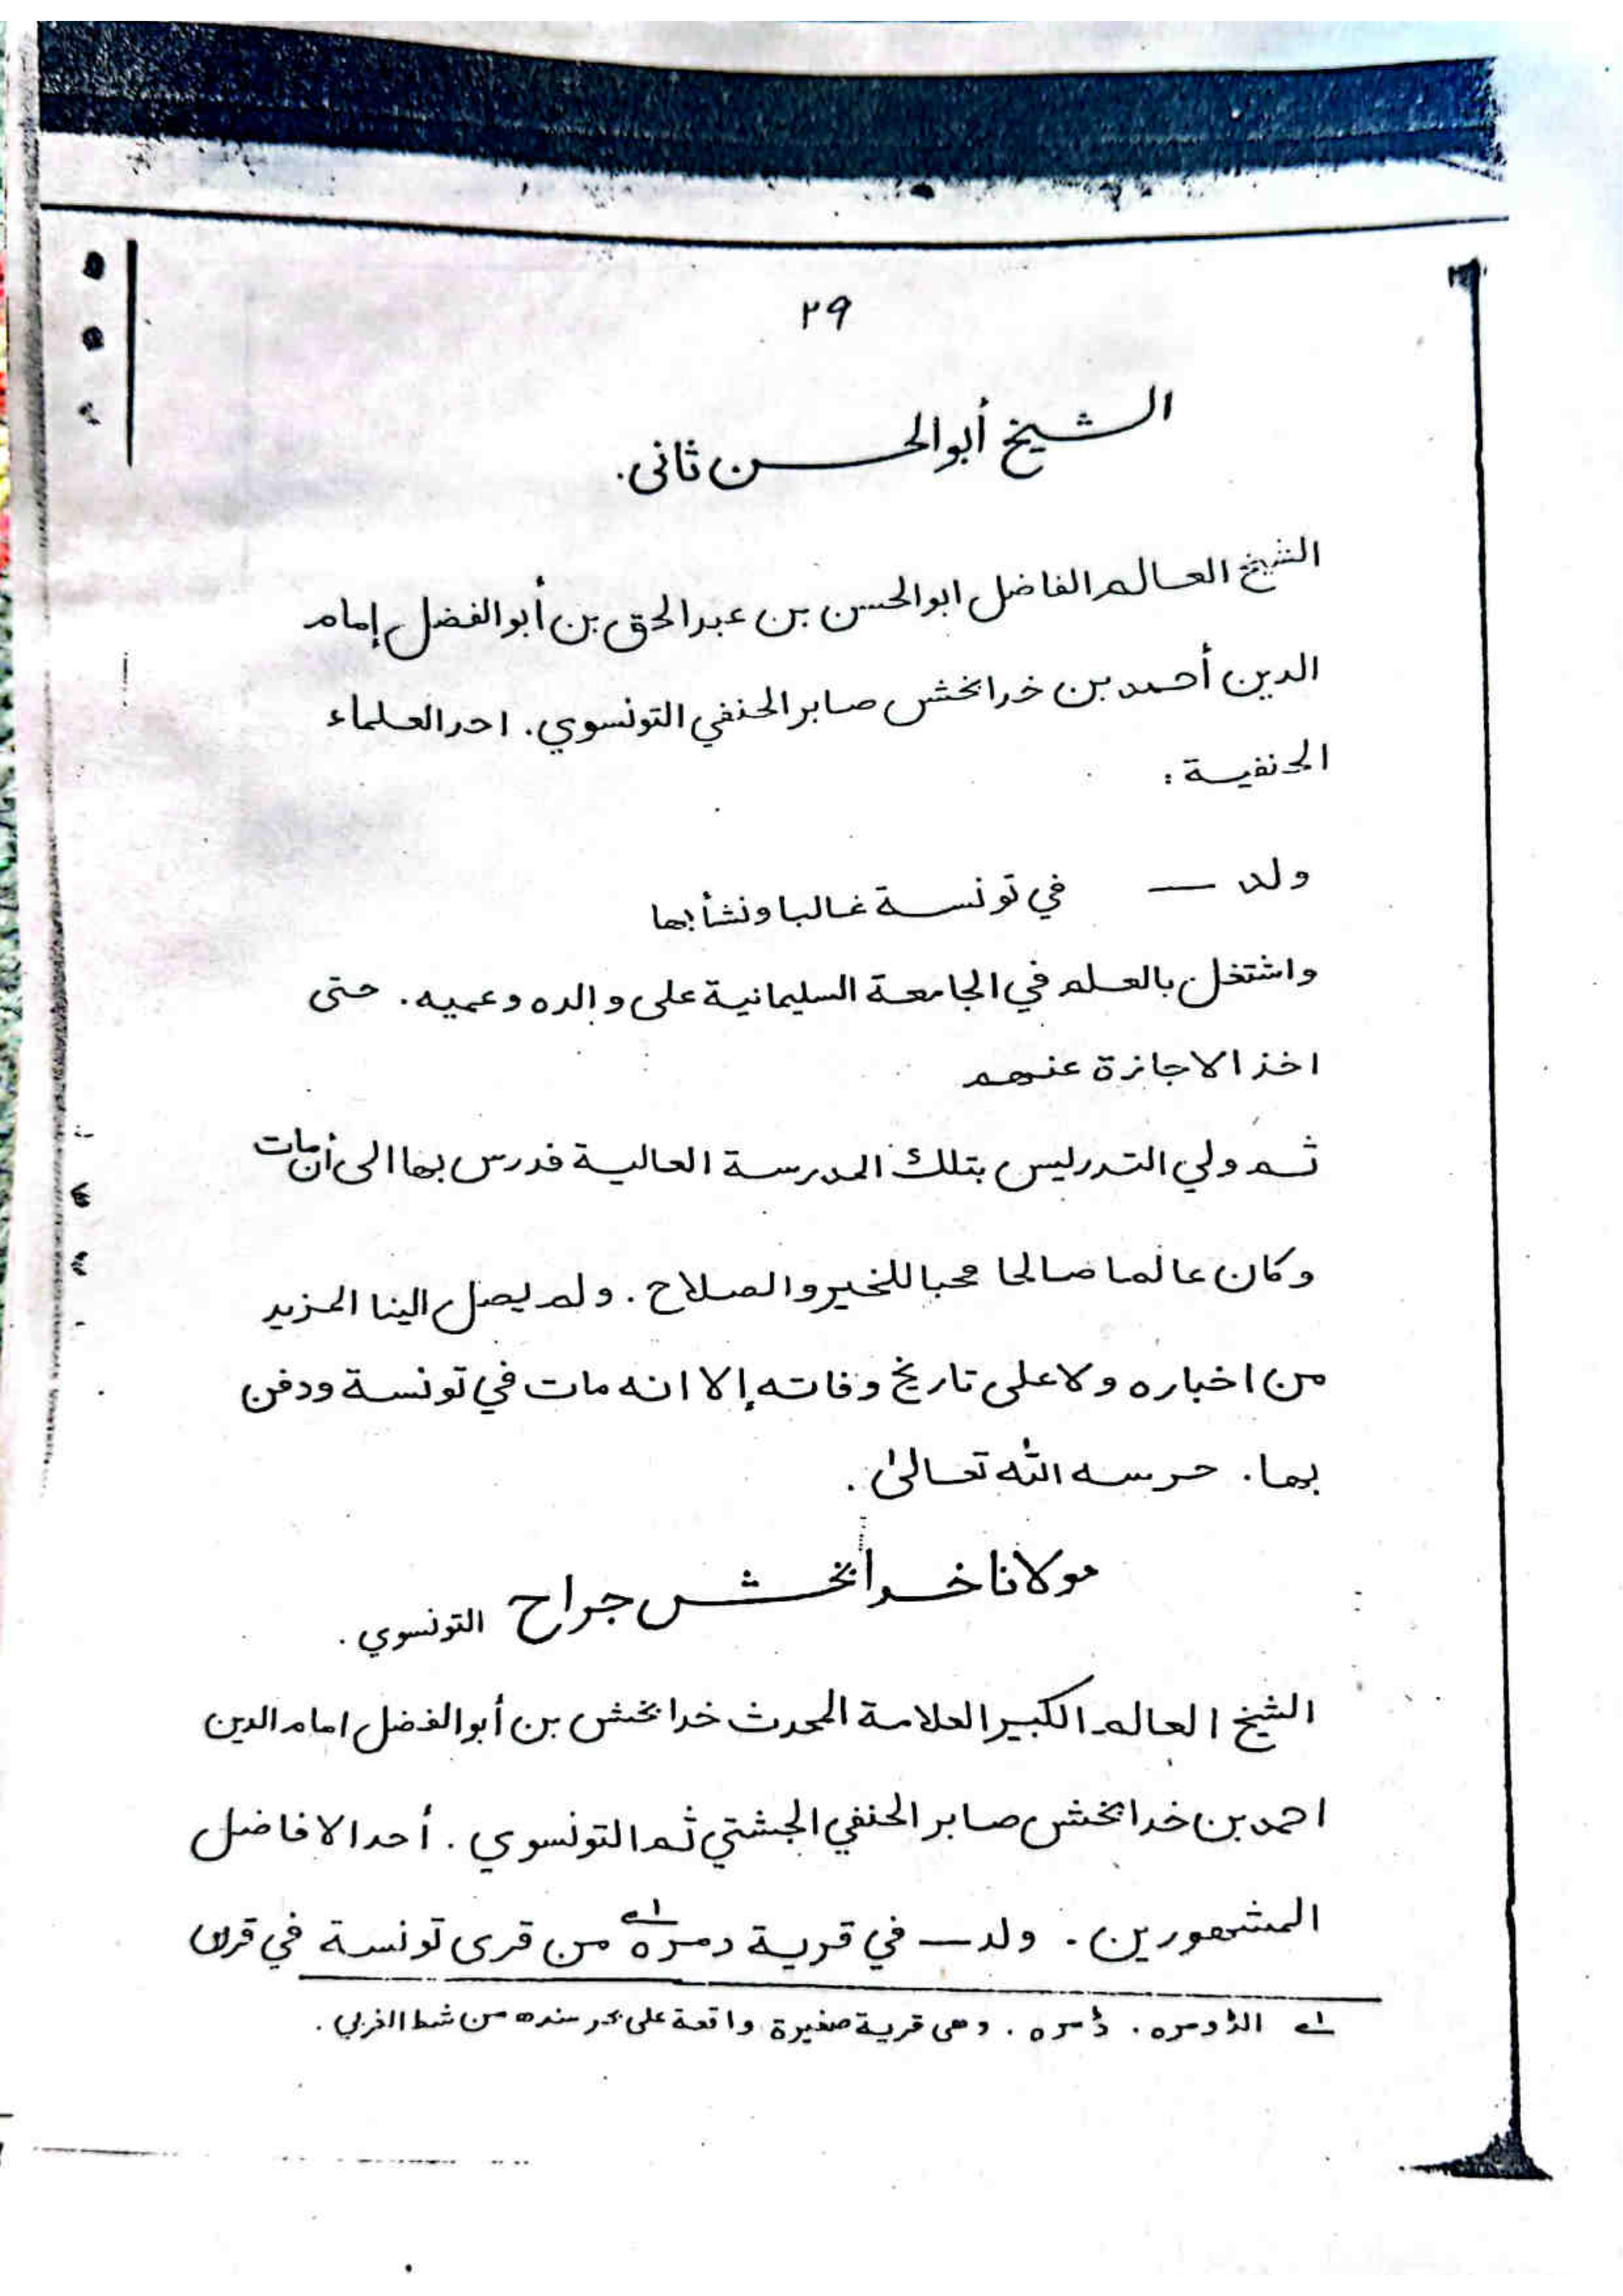 ٢٩
الشيخ أبوالحسن ثانى.
الشيخ العالم الفاضل ابوالحسن بن عبدالحق بن أبوالفضل إمام
الدين أحمد بن خدابخش صابر الحنفي التونسوي. احد العلماء
الحنفية :
ولد — في تونسة غالبا ونشأ بها
واشتغل بالعلم في الجامعة السليمانية على والده وعميه. حتى
اخذ الاجازة عنهم
ثم ولي التدريس بتلك المدرسة العالية فدرس بها الى أن مات
وكان عالما صالحا محبا للخير والصلاح. ولم يصل الينا المزيد
من اخباره ولا على تاريخ وفاته إلا انه مات في تونسة ودفن
بها. حرسه الله تعالىٰ.
مولانا خدابخش جراح التونسوي.
الشيخ العالم الكبير العلامة المحدث خدا بخش بن أبوالفضل امام الدين
احمد بن خدا بخش صابر الحنفي الجشتي ثم التونسوي. أحد الافاضل
المشهورين. ولد — في قرية دمره ١ے من قرى تونسة في قرن
١ے الڈومره. ڈمره. وهى قرية صغيرة واقعة على بحر سنده من شط الغربي.